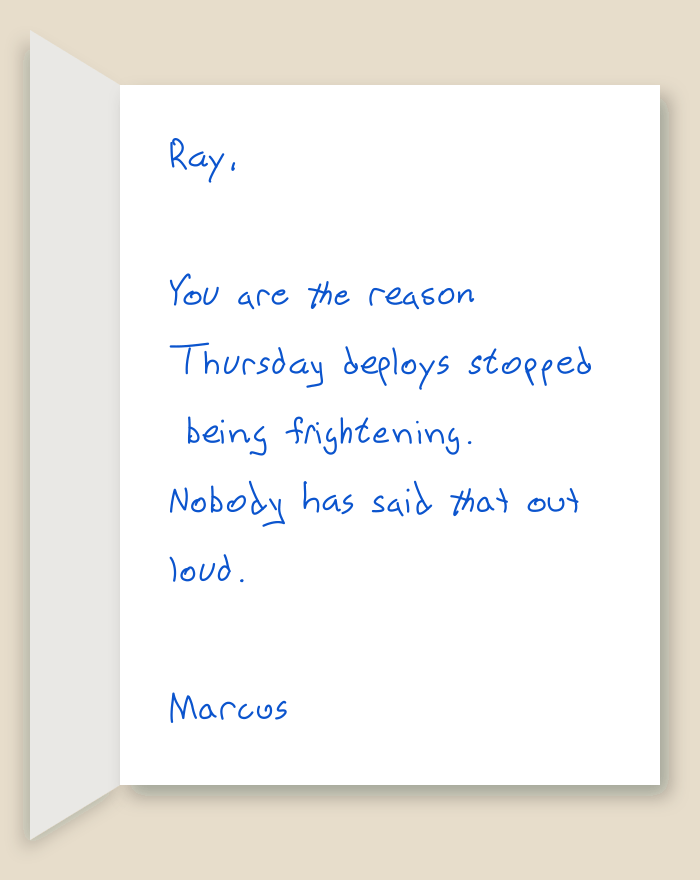 Ray,
You are the reason
Thursday deploys stopped
being frightening.
Nobody has said that out
loud.
Marcus